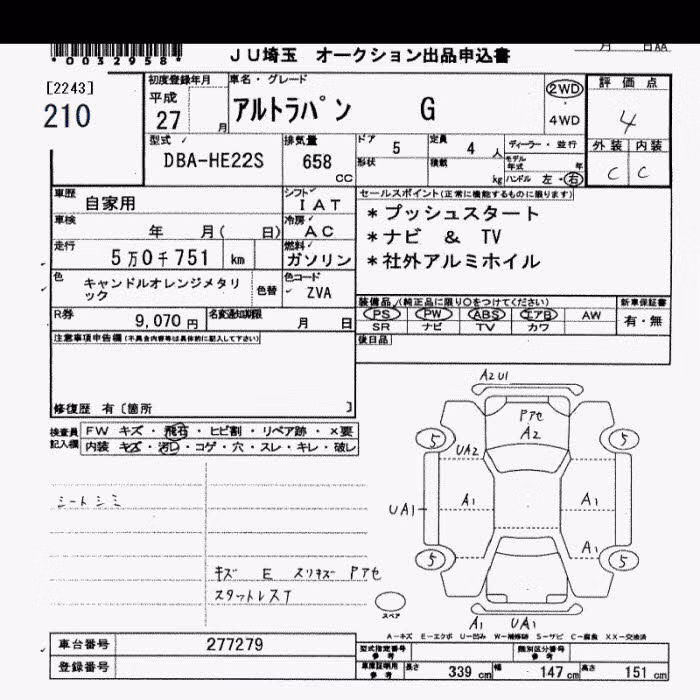 *0032958*
JU埼玉 オークション出品申込書
月 日AA
[2243]
210
初度登録年月
平成
27 月
車名・グレード
アルトラパン G
2WD
・
4WD
評価点
4
外装 内装
C C
型式
DBA-HE22S
排気量
658
CC
ドア
5
定員
4 人
ディーラー・並行
形状
積載
kg
モデル年式 年
ハンドル 左・右
車歴
自家用
シフト
IAT
車検
年 月( 日)
冷房
AC
走行
5万0千751 km
燃料
ガソリン
色
キャンドルオレンジメタリ
ック
色替
色コード
ZVA
R券
9,070 円
名変通知期限
月 日
セールスポイント(正常に機能するものに限ります)
*プッシュスタート
*ナビ & TV
*社外アルミホイル
装備品(純正品に限り○をつけてください)
新車保証書
PS PW ABS エアB AW
SR ナビ TV カワ
有・無
後日品
注意事項申告欄(不具合内容等は具体的に記入して下さい)
修復歴 有〔箇所 〕
検査員
記入欄
FW キズ・飛石・ヒビ割・リペア跡・×要
内装 キズ・汚レ・コゲ・穴・スレ・キレ・破レ
シートシミ
キズ E スリキズ Pアセ
スタットレスT
A2U1
Pアセ
A2
5 5
UA2
UA1
A1 A1
A1
5 5
スペア
A1 UA1
A-キズ E-エクボ U-凹み W-補修跡 S-サビ C-腐食 XX-交換済
車台番号 277279
登録番号
型式指定番号
参考
類別区分番号
参考
車庫証明用
参考
長さ 339 cm 幅 147 cm 高さ 151 cm